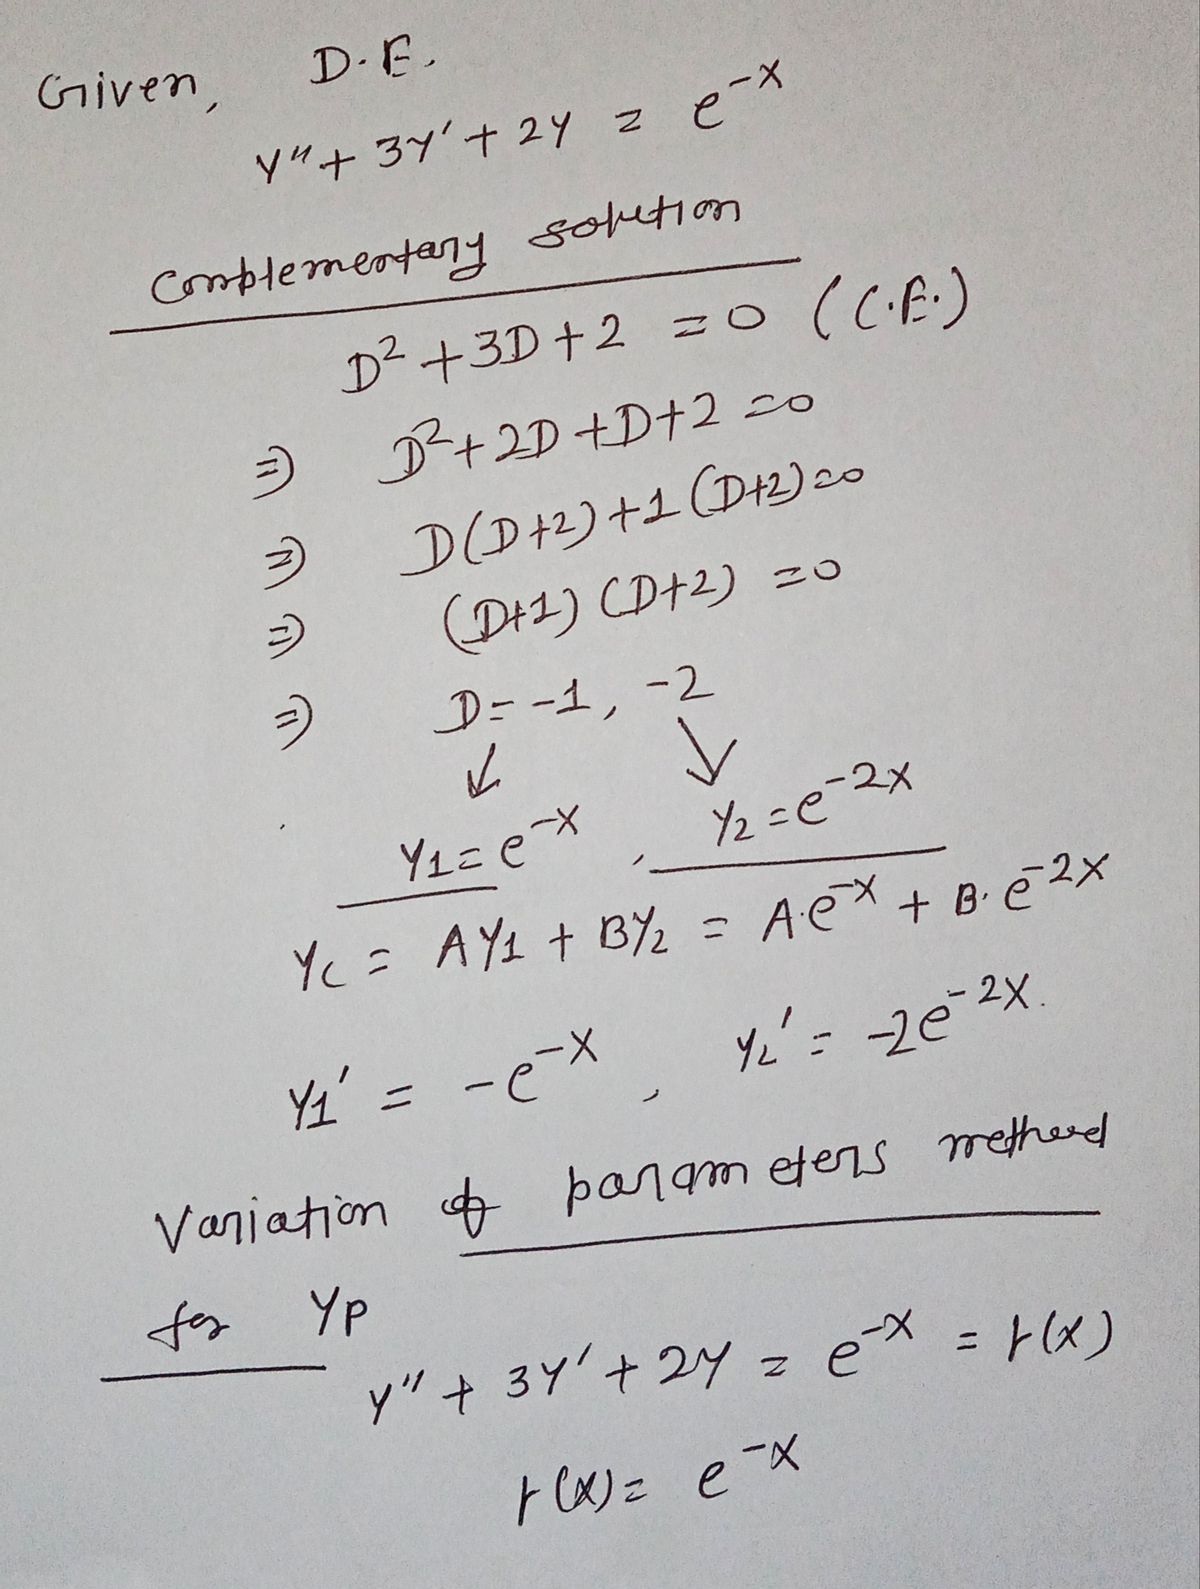 Given, D.E.
y" + 3y' + 2y = e^-x
Complementary solution
D² + 3D + 2 = 0 (C.E.)
⇒ D² + 2D + D + 2 = 0
⇒ D(D+2) + 1(D+2) = 0
⇒ (D+1) (D+2) = 0
⇒ D = -1, -2
↙ ↘
y1 = e^-x, y2 = e^-2x
yc = Ay1 + By2 = A·e^-x + B·e^-2x
y1' = -e^-x, y2' = -2e^-2x.
Variation of parameters method
for yp
y" + 3y' + 2y = e^-x = r(x)
r(x) = e^-x